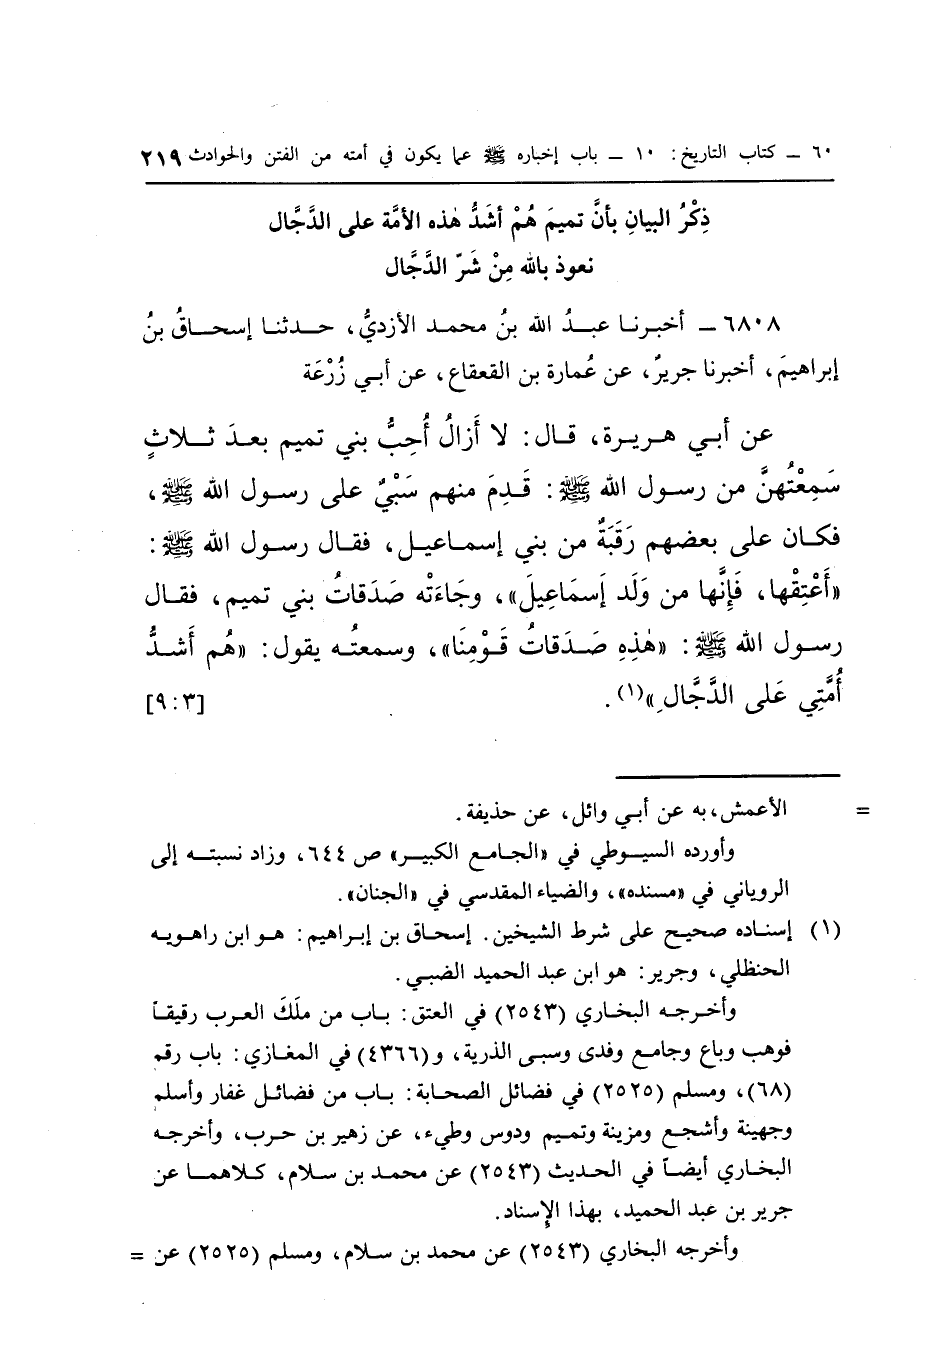 ٦٠ ــ كتاب التاريخ: ١٠ ــ باب إخباره ﷺ عما يكون في أمته من الفتن والحوادث ٢١٩
ذِكْرُ البيانِ بأنَّ تميمَ هُمْ أشَدُّ هٰذه الأمَّة على الدَّجَّال
نعوذ بالله مِنْ شَرِّ الدَّجَّال
٦٨٠٨ ــ أخبرنا عبدُ الله بنُ محمد الأزديُّ، حدثنا إسحاقُ بنُ
إبراهيمَ، أخبرنا جريرٌ، عن عُمارة بن القعقاع، عن أبي زُرْعَة
عن أبي هريرة، قال: لا أَزالُ أُحِبُّ بني تميم بعدَ ثلاثٍ
سَمِعْتُهنَّ من رسول الله ﷺ: قَدِمَ منهم سَبْيٌ على رسول الله ﷺ،
فكان على بعضهم رَقَبَةٌ من بني إسماعيل، فقال رسول الله ﷺ:
«أَعْتِقْها، فَإِنَّها من وَلَد إِسَمَاعِيلَ»، وجَاءَتْه صَدَقاتُ بني تميم، فقال
رسول الله ﷺ: «هٰذِهِ صَدَقاتُ قَوْمِنَا»، وسمعتُه يقول: «هُم أَشدُّ
أُمَّتِي عَلى الدَّجَّالِ»(١). [٣: ٩]
= الأعمش، به عن أبي وائل، عن حذيفة.
وأورده السيوطي في «الجامع الكبير» ص ٦٤٤، وزاد نسبته إلى
الروياني في «مسنده»، والضياء المقدسي في «الجنان».
(١) إسناده صحيح على شرط الشيخين. إسحاق بن إبراهيم: هو ابن راهويه
الحنظلي، وجرير: هو ابن عبد الحميد الضبي.
وأخرجه البخاري (٢٥٤٣) في العتق: باب من ملَكَ العرب رقيقاً
فوهب وباع وجامع وفدى وسبى الذرية، و(٤٣٦٦) في المغازي: باب رقم
(٦٨)، ومسلم (٢٥٢٥) في فضائل الصحابة: باب من فضائل غفار وأسلم
وجهينة وأشجع ومزينة وتميم ودوس وطيء، عن زهير بن حرب، وأخرجه
البخاري أيضاً في الحديث (٢٥٤٣) عن محمد بن سلام، كلاهما عن
جرير بن عبد الحميد، بهذا الإِسناد.
وأخرجه البخاري (٢٥٤٣) عن محمد بن سلام، ومسلم (٢٥٢٥) عن =